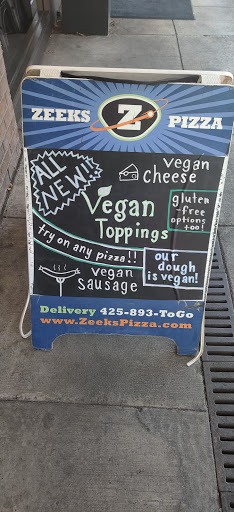 ZEEKS Z PIZZA
ALL NEW!!
vegan cheese
Vegan Toppings
gluten
-free
options
too!
try on any pizza!!
our dough
is vegan!
vegan
sausage
Delivery 425-893-ToGo
www.ZeeksPizza.com